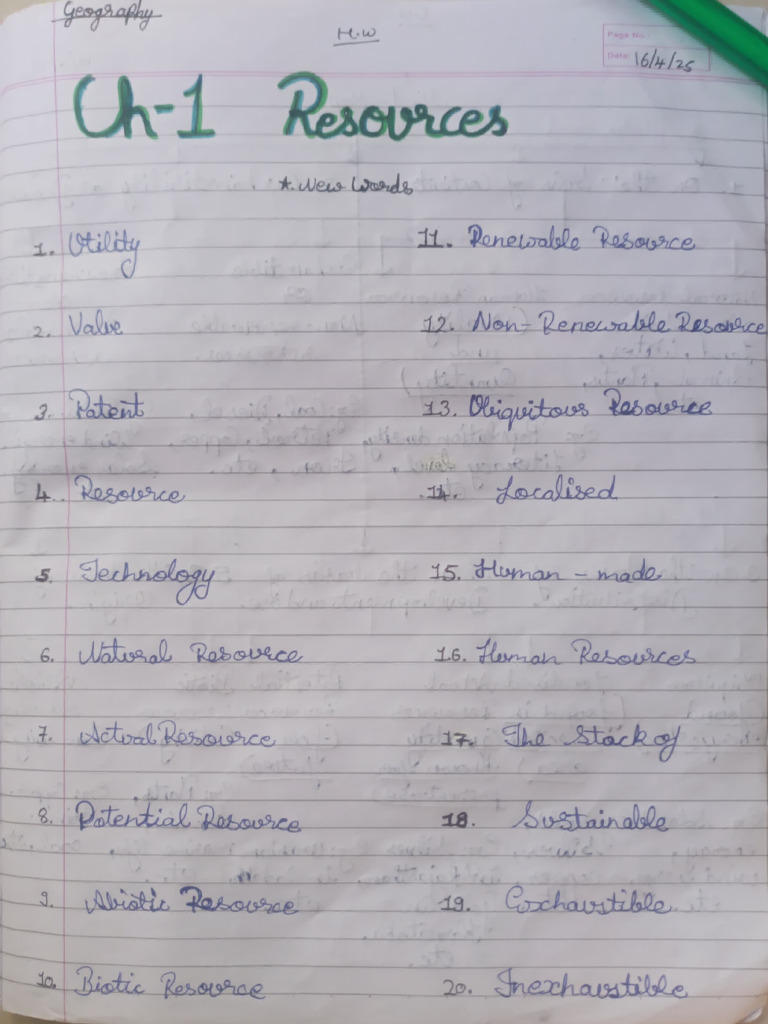 Geography
H.W
Page No.:
Date: 16/4/25
Ch-1 Resources
* New Words
1. Utility
2. Value
3. Patent
4. Resource
5. Technology
6. Natural Resource
7. Actual Resource
8. Potential Resource
9. Abiotic Resource
10. Biotic Resource
11. Renewable Resource
12. Non-Renewable Resource
13. Ubiquitous Resource
14. Localised
15. Human-made
16. Human Resources
17. The Stock of
18. Sustainable
19. Exhaustible
20. Inexhaustible